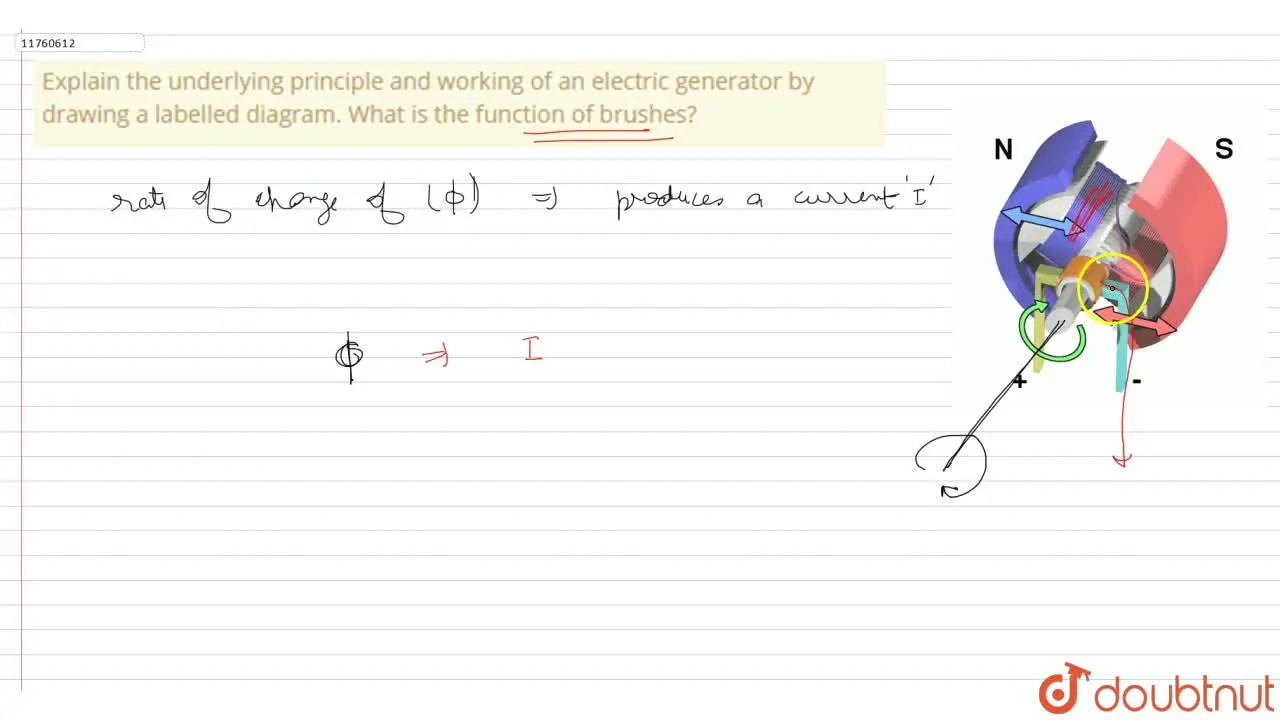 11760612
Explain the underlying principle and working of an electric generator by
drawing a labelled diagram. What is the function of brushes?
N S
rate of change of (ϕ) ⇒ produces a current 'I'
ϕ ⇒ I
+ -
doubtnut